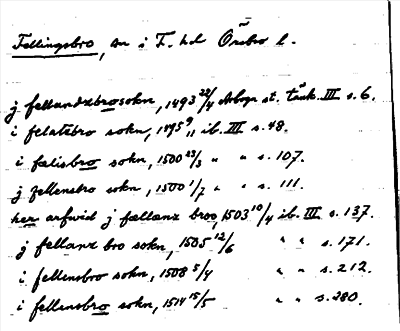 Fellingsbro, sn i F. hd Örebro l.
j fellandzbrosokn, 1493 22/4 Arboga st. tänk. III s. 6.
i felatzbro sokn, 1495 9/11 ib. III s. 48.
i fælisbro sokn, 1500 23/3 " " s. 107.
j fellensbro sokn, 1500 1/7 " " s. 111.
her arfwid j fællanz broo, 1503 10/4 ib. III s. 137.
j fellanz bro sokn, 1505 12/6 " " s. 171.
i fellensbro sokn, 1508 5/4 " " s. 212.
i fellensbro sokn, 1514 15/5 " " s. 280.